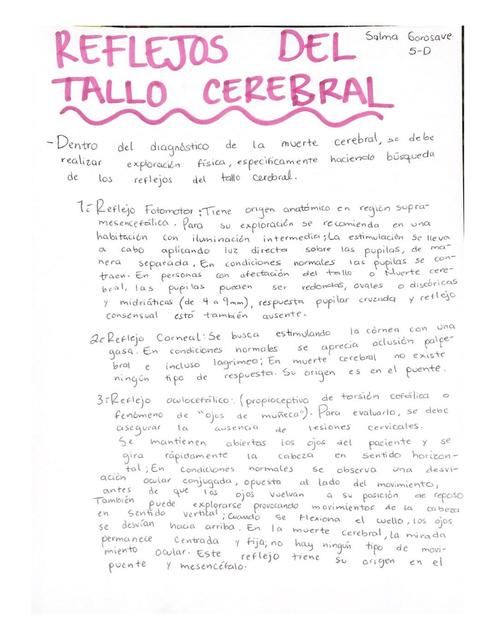 REFLEJOS DEL
Salma Gorosave
5-D
TALLO CEREBRAL
- Dentro del diagnóstico de la muerte cerebral, se debe
realizar exploración física, específicamente haciendo búsqueda
de los reflejos del tallo cerebral.
1: Reflejo Fotomotor: Tiene origen anatómico en región supra-
mesencefálica. Para su exploración se recomienda en una
habitación con iluminación intermedia; La estimulación se lleva
a cabo aplicando luz directa sobre las pupilas, de ma-
nera separada. En condiciones normales las pupilas se con-
traen. En personas con afectación del tallo o Muerte cere-
bral, las pupilas pueden ser redondas, ovales o discóricas
y midriáticas (de 4 a 9mm), respuesta pupilar cruzada y reflejo
consensual está también ausente.
2: Reflejo Corneal: Se busca estimulando la córnea con una
gasa. En condiciones normales se aprecia oclusión palpe-
bral e incluso lagrimeo; En muerte cerebral no existe
ningún tipo de respuesta. Su origen es en el puente.
3: Reflejo oculocefálico: (propioceptivo de torsión cefálica o
fenómeno de "ojos de muñeca"). Para evaluarlo, se debe
asegurar la ausencia de lesiones cervicales.
Se mantienen abiertas los ojos del paciente y se
gira rápidamente la cabeza en sentido horizon-
tal; En condiciones normales se observa una desvi-
ación ocular conjugada, opuesta al lado del movimiento,
antes de que los ojos vuelvan a su posición de reposo
También puede explorarse provocando movimientos de la cabeza
en sentido vertical; Cuando se flexiona el cuello, los ojos
se desvían hacia arriba. En la muerte cerebral, la mirada
permanece centrada y fija; no hay ningún tipo de movi-
miento ocular. Este reflejo tiene su origen en el
puente y mesencéfalo.